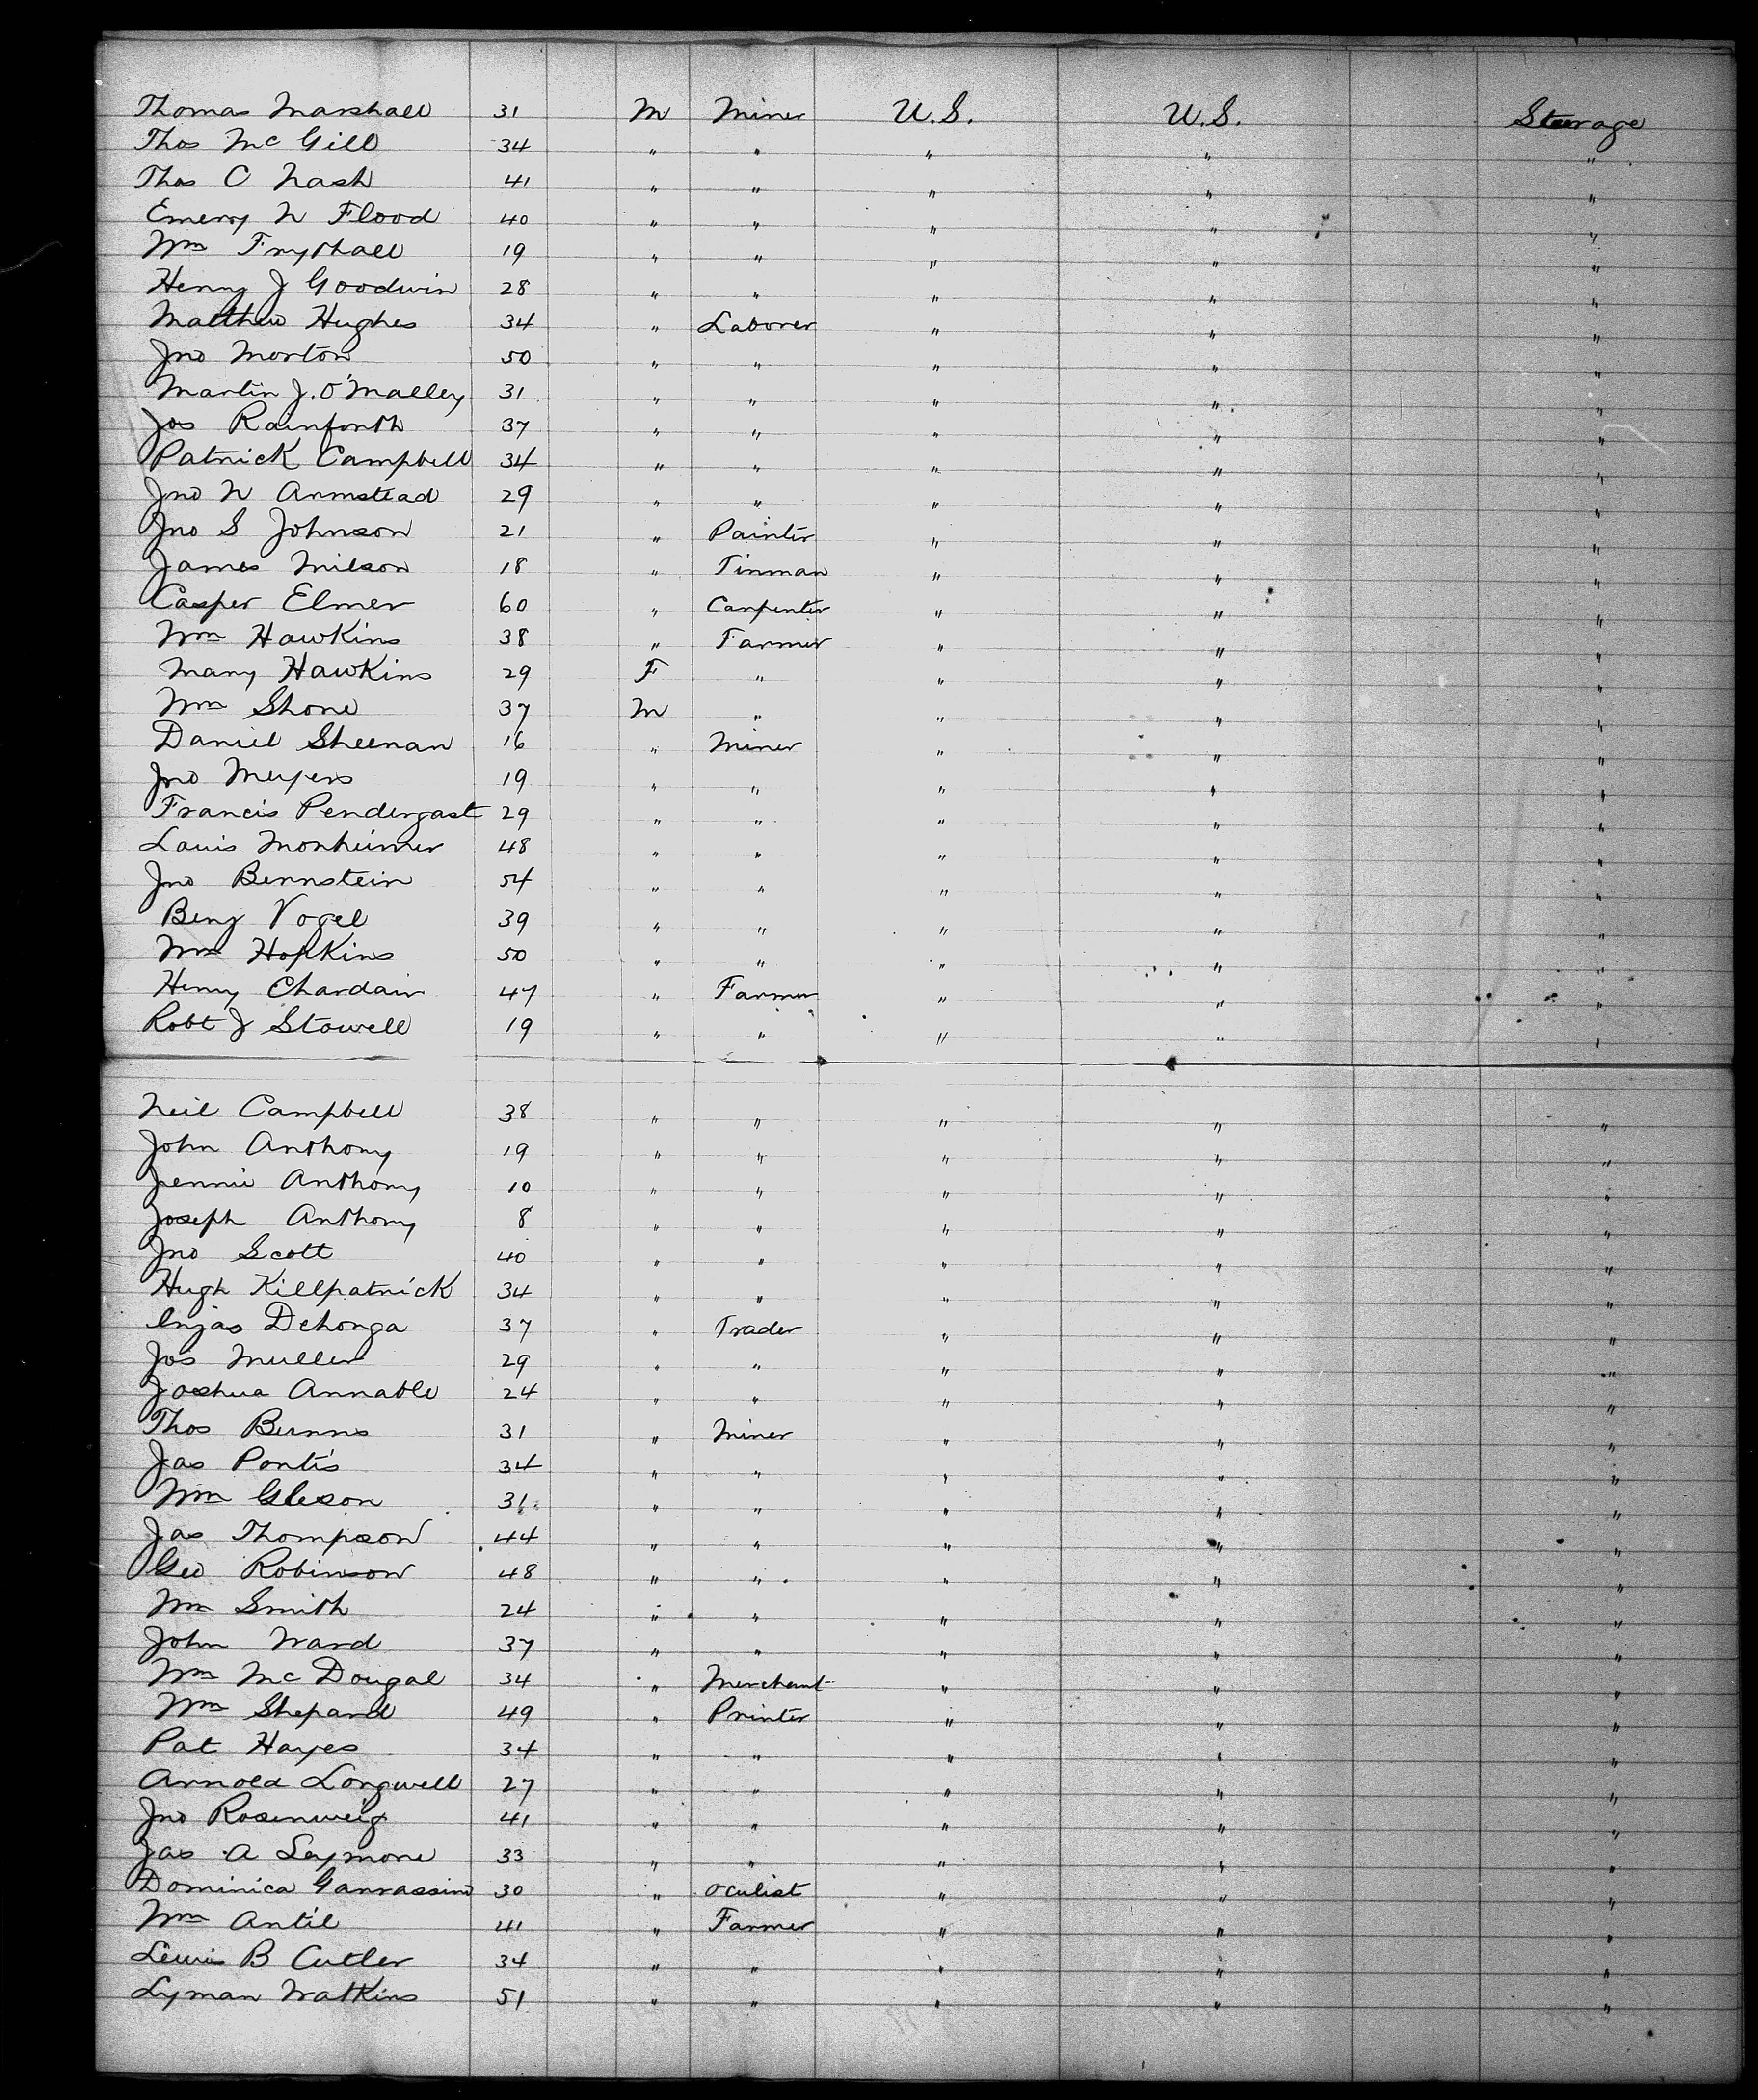 Thomas Marshall 31 M Miner U.S. U.S. Steerage
Thos McGill 34 " " " " "
Thos C Nash 41 " " " " "
Emery N Flood 40 " " " " "
Wm Frythall 19 " " " " "
Henry J Goodwin 28 " " " " "
Matthew Hughes 34 " Laborer " " "
Jno Morton 50 " " " " "
Martin J. O'Malley 31 " " " " "
Jos Rainforth 37 " " " " "
Patrick Campbell 34 " " " " "
Jno N Armstead 29 " " " " "
Jno S Johnson 21 " Painter " " "
James Milson 18 " Tinman " " "
Casper Elmer 60 " Carpenter " " "
Wm Hawkins 38 " Farmer " " "
Mary Hawkins 29 F " " " "
Wm Shone 37 M " " " "
Daniel Sheenan 16 " Miner " " "
Jno Meyers 19 " " " " "
Francis Pendergast 29 " " " " "
Louis Monheimer 48 " " " " "
Jno Bernstein 54 " " " " "
Benj Vogel 39 " " " " "
Wm Hopkins 50 " " " " "
Henry Chardain 47 " Farmer " " "
Robt J Stowell 19 " " " " "
Neil Campbell 38 " " " " "
John Anthony 19 " " " " "
Jennie Anthony 10 " " " " "
Joseph Anthony 8 " " " " "
Jno Scott 40 " " " " "
Hugh Killpatrick 34 " " " " "
Dehonga 37 " Trader " " "
Jos Muller 29 " " " " "
Joshua Annable 24 " " " " "
Thos Burns 31 " Miner " " "
Jas Pontis 34 " " " " "
Wm Gleson 31 " " " " "
Jas Thompson 44 " " " " "
Geo Robinson 48 " " " " "
Wm Smith 24 " " " " "
John Ward 37 " " " " "
Wm McDougal 34 " Merchant " " "
Wm Shepard 49 " Printer " " "
Pat Hayes 34 " " " " "
Arnold Longwell 27 " " " " "
Jno Rosenweig 41 " " " " "
Jas A Seymore 33 " " " " "
Dominica Ganrassino 30 " Oculist " " "
Wm Antil 41 " Farmer " " "
Lewis B Cutler 34 " " " " "
Lyman Watkins 51 " " " " "